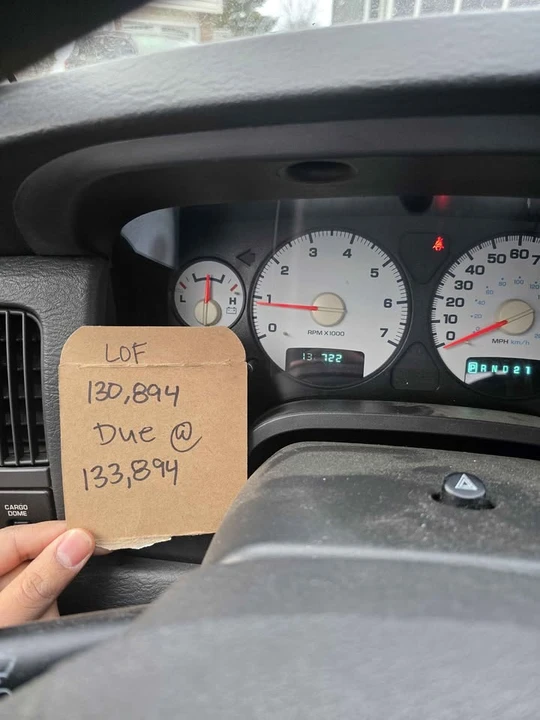 LOF
130,894
Due @
133,894
L H
0 1 2 3 4 5 6 7
RPM X1000
13 722
0 10 20 30 40 50 60 70
MPH km/h
P R N D 2 1
CARGO
DOME